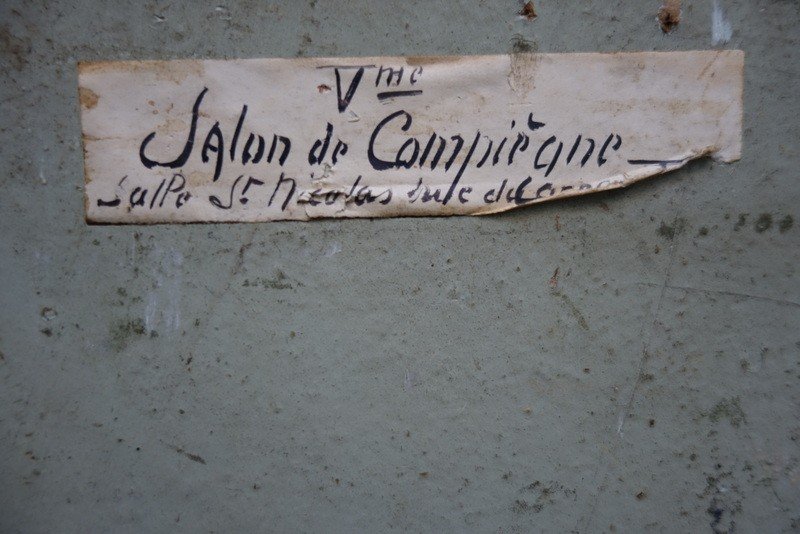 Vme
Salon de Compiègne
Salle St Nicolas rue du